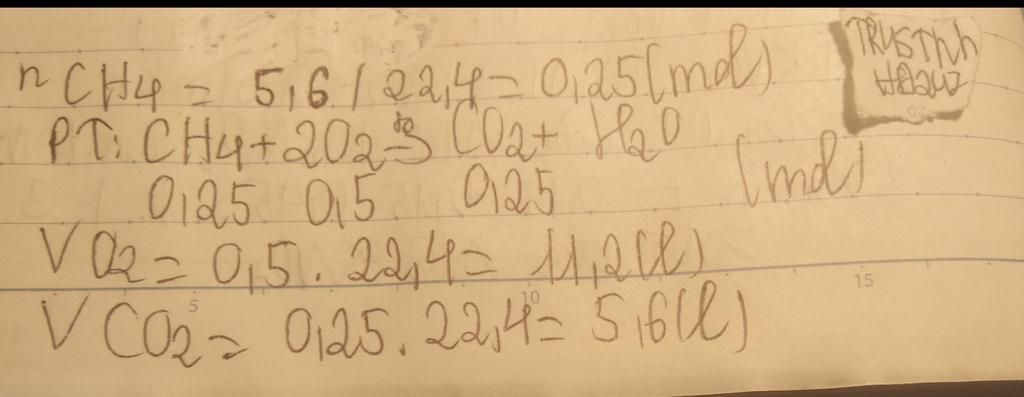 n CH4 = 5,6 / 22,4 = 0,25 (mol)
PT: CH4 + 2O2 → CO2 + H2O
0,25 0,5 0,25 (mol)
V O2 = 0,5 . 22,4 = 11,2 (l)
V CO2 = 0,25 . 22,4 = 5,6 (l)
5 10 15